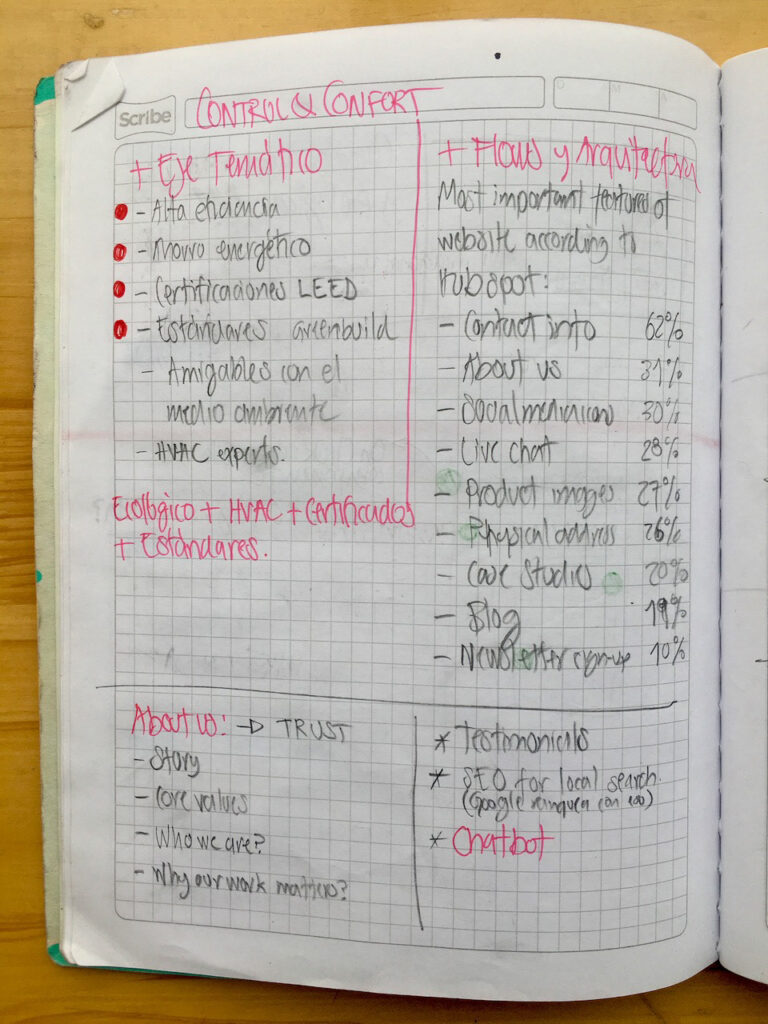 Scribe
CONTROL & CONFORT
D M A
+ Eje Temático
- Alta eficiencia
- Ahorro energético
- Certificaciones LEED
- Estándares greenbuild
- Amigables con el
medio ambiente
- HVAC experts.
Ecológico + HVAC + Certificados
+ Estándares.
+ Flows y Arquitectura
Most important features of
website according to
Hubspot:
- Contact info 62%
- About us 31%
- Social media icons 30%
- Live chat 28%
- Product images 27%
- Physical address 26%
- Case Studies 20%
- Blog 19%
- Newsletter sign-up 10%
About us: → TRUST
- Story
- Core values
- Who we are?
- Why our work matters?
* Testimonials
* SEO for local search.
(Google con eso)
* Chatbot